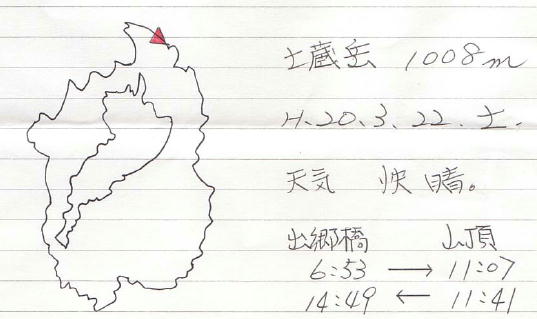 土蔵岳 1008m
H.20.3.22.土.
天気 快晴。
出郷橋 山頂
6:53 → 11:07
14:49 ← 11:41